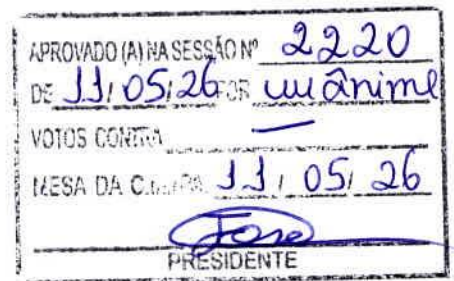 APROVADO (A) NA SESSÃO Nº 2220
DE 11/05/26 POR unânime
VOTOS CONTRA —
MESA DA 11/05/26
PRESIDENTE